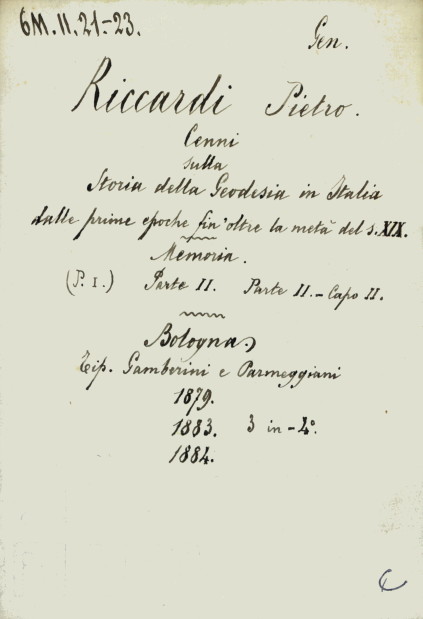 6M.II.21.-23.
Gen.
Riccardi Pietro.
Cenni
sulla
Storia della Geodesia in Italia
dalle prime epoche fin'oltre la metà del s. XIX.
Memoria.
(P. I.) Parte II. Parte II.-Capo II.
Bologna.
Tip. Gamberini e Parmeggiani
1879.
1883. 3 in-4°.
1884.